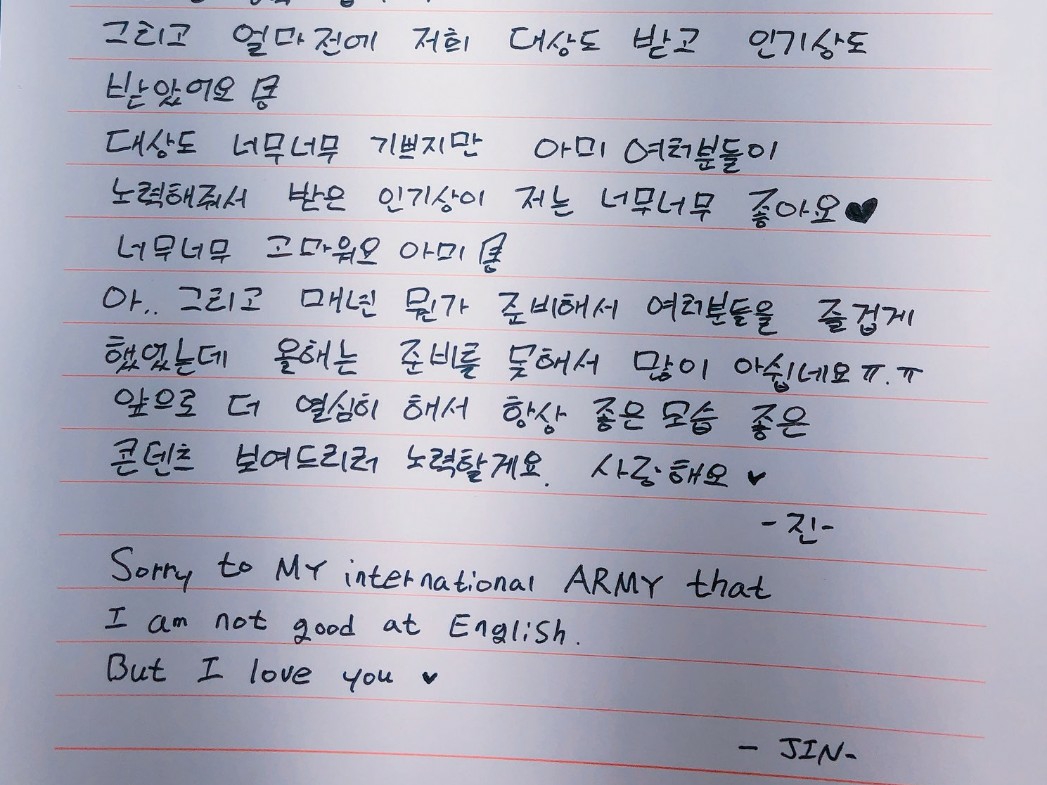 그리고 얼마전에 저희 대상도 받고 인기상도
받았어요
대상도 너무너무 기쁘지만 아미 여러분들이
노력해줘서 받은 인기상이 저는 너무너무 좋아요♥
너무너무 고마워요 아미
아.. 그리고 매년 뭔가 준비해서 여러분들을 즐겁게
했었는데 올해는 준비를 못해서 많이 아쉽네요ㅠ.ㅠ
앞으로 더 열심히 해서 항상 좋은 모습 좋은
콘텐츠 보여드리려 노력할게요. 사랑해요 ♥
-진-
Sorry to MY international ARMY that
I am not good at EngliSh.
But I love you ♥
- JIN-